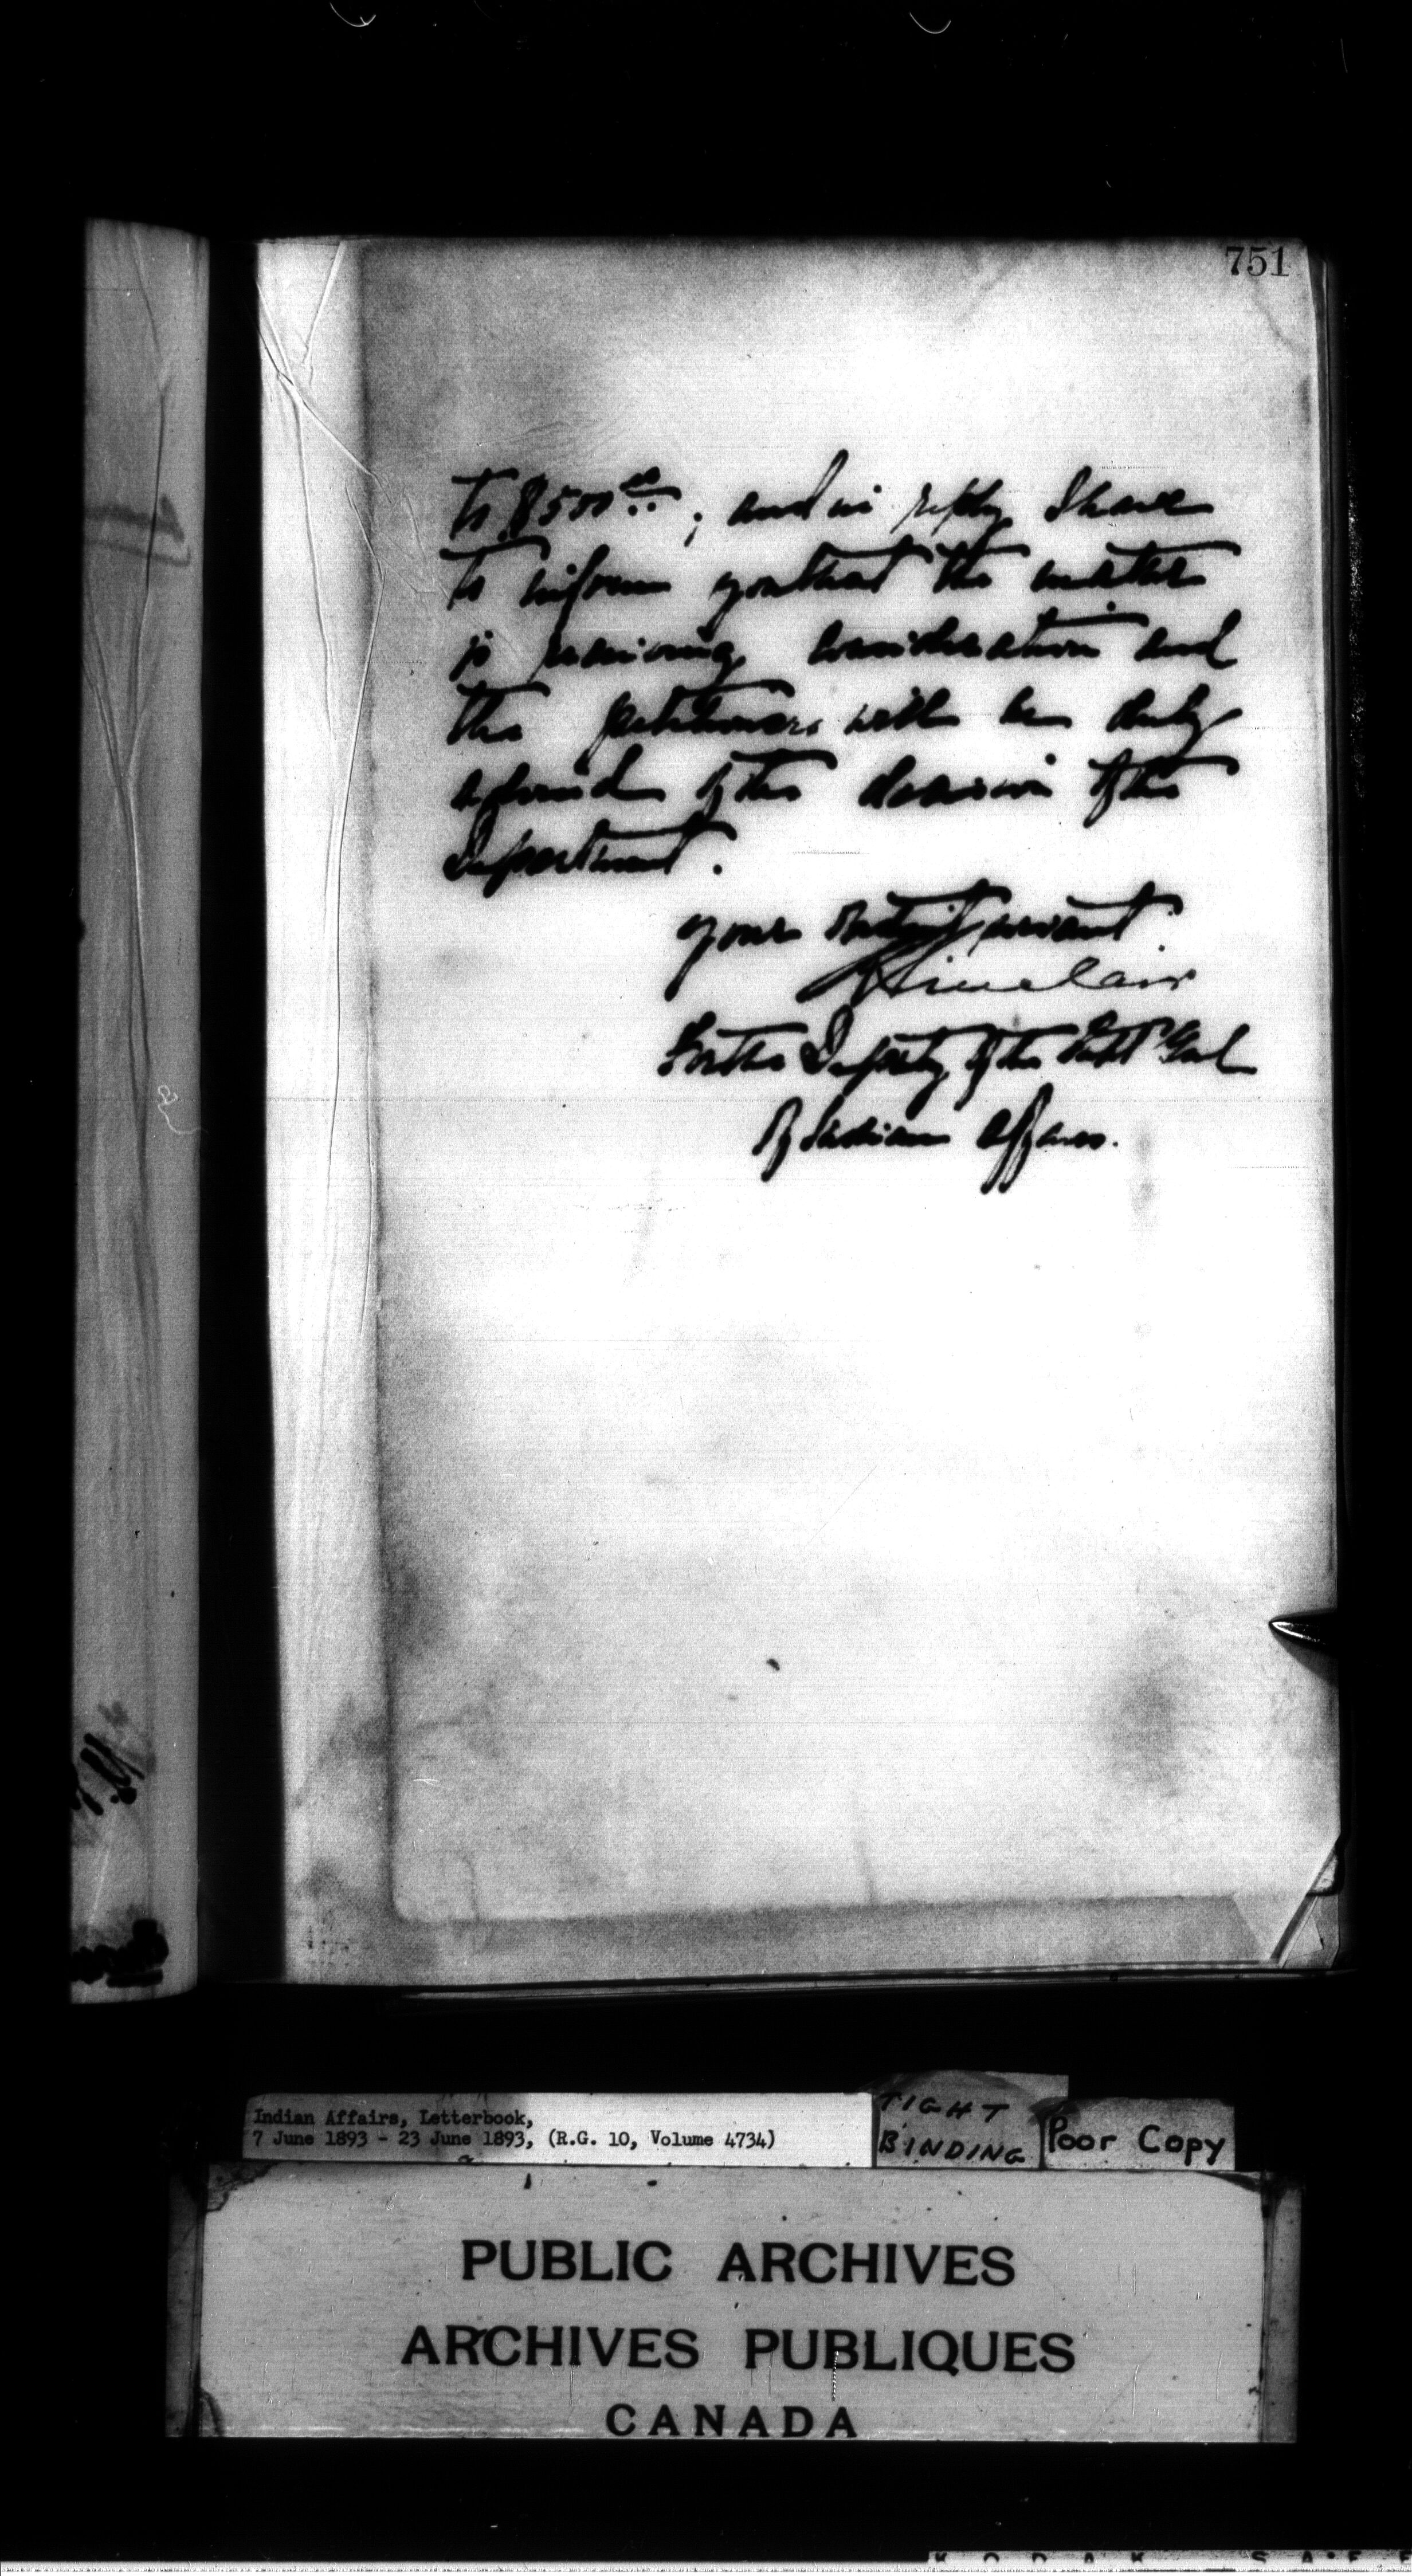 751
to $500.00; and in reply I have
to inform you that the matter
is receiving consideration and
the petitioners will be duly
informed of the decision of the
Department.
Your obedient servant
R Sinclair
For the Deputy of the Supt Genl
of Indian Affairs.
Indian Affairs, Letterbook,
7 June 1893 - 23 June 1893, (R.G. 10, Volume 4734)
TIGHT
BINDING
Poor Copy
PUBLIC ARCHIVES
ARCHIVES PUBLIQUES
CANADA
KODAK SAFE